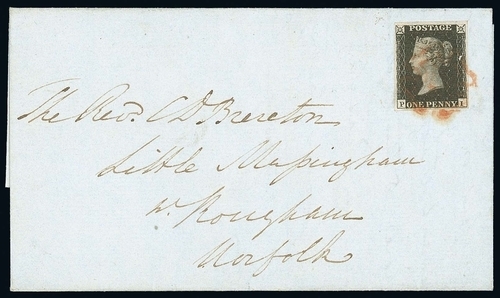 POSTAGE
ONE PENNY
The Revd. C D Brereton
Little Massingham
nr. Rougham
Norfolk